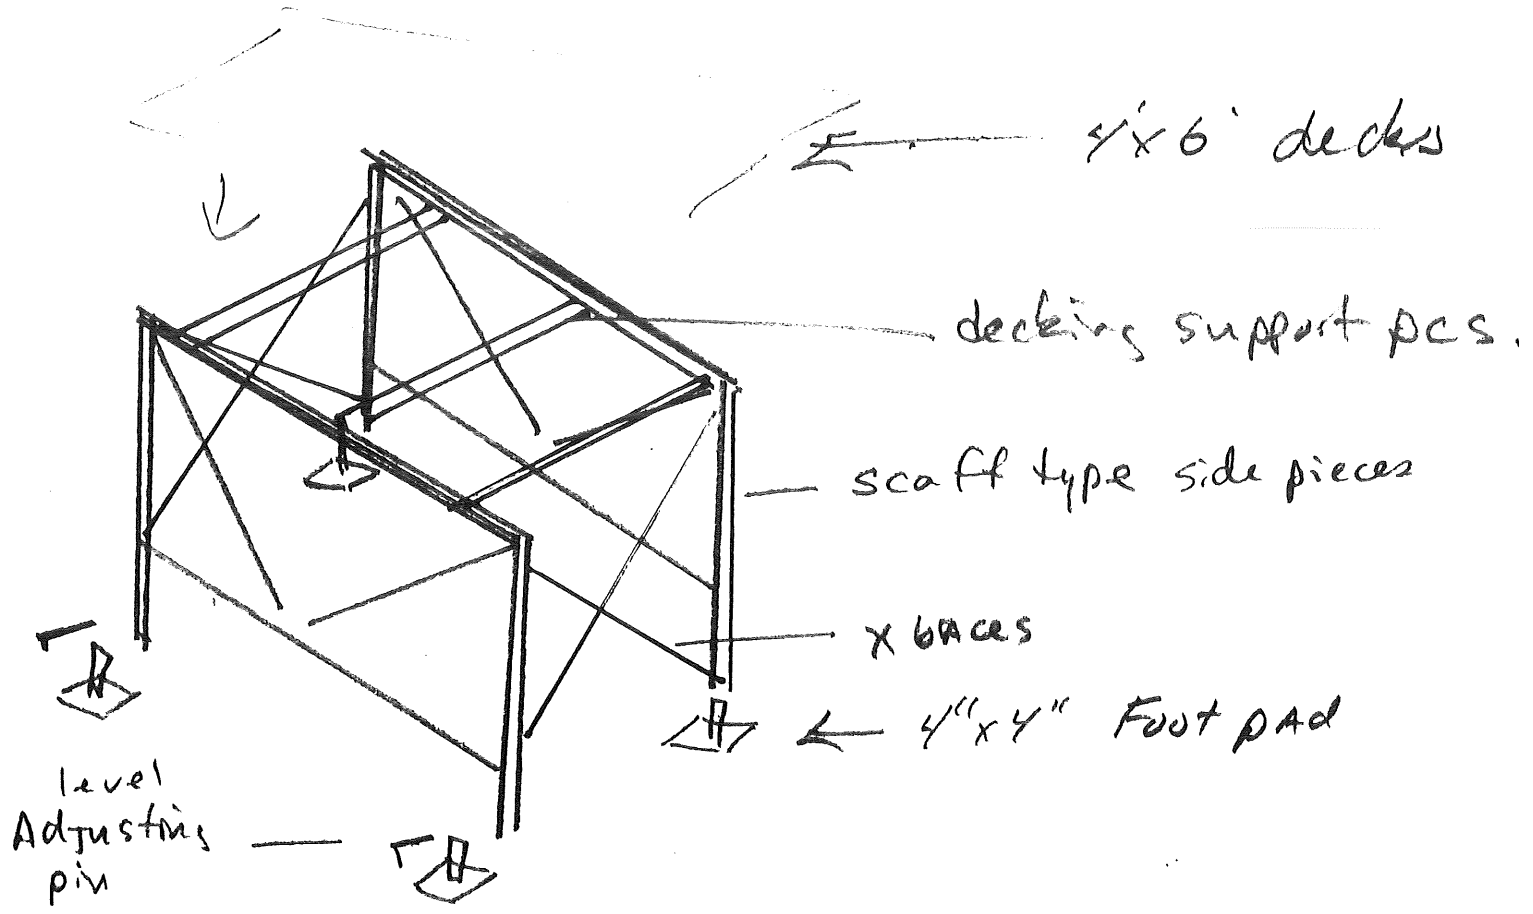 4'x6' decks
decking support pcs.
scaff type side pieces
x braces
4"x4" Foot pad
level
Adjusting
pin